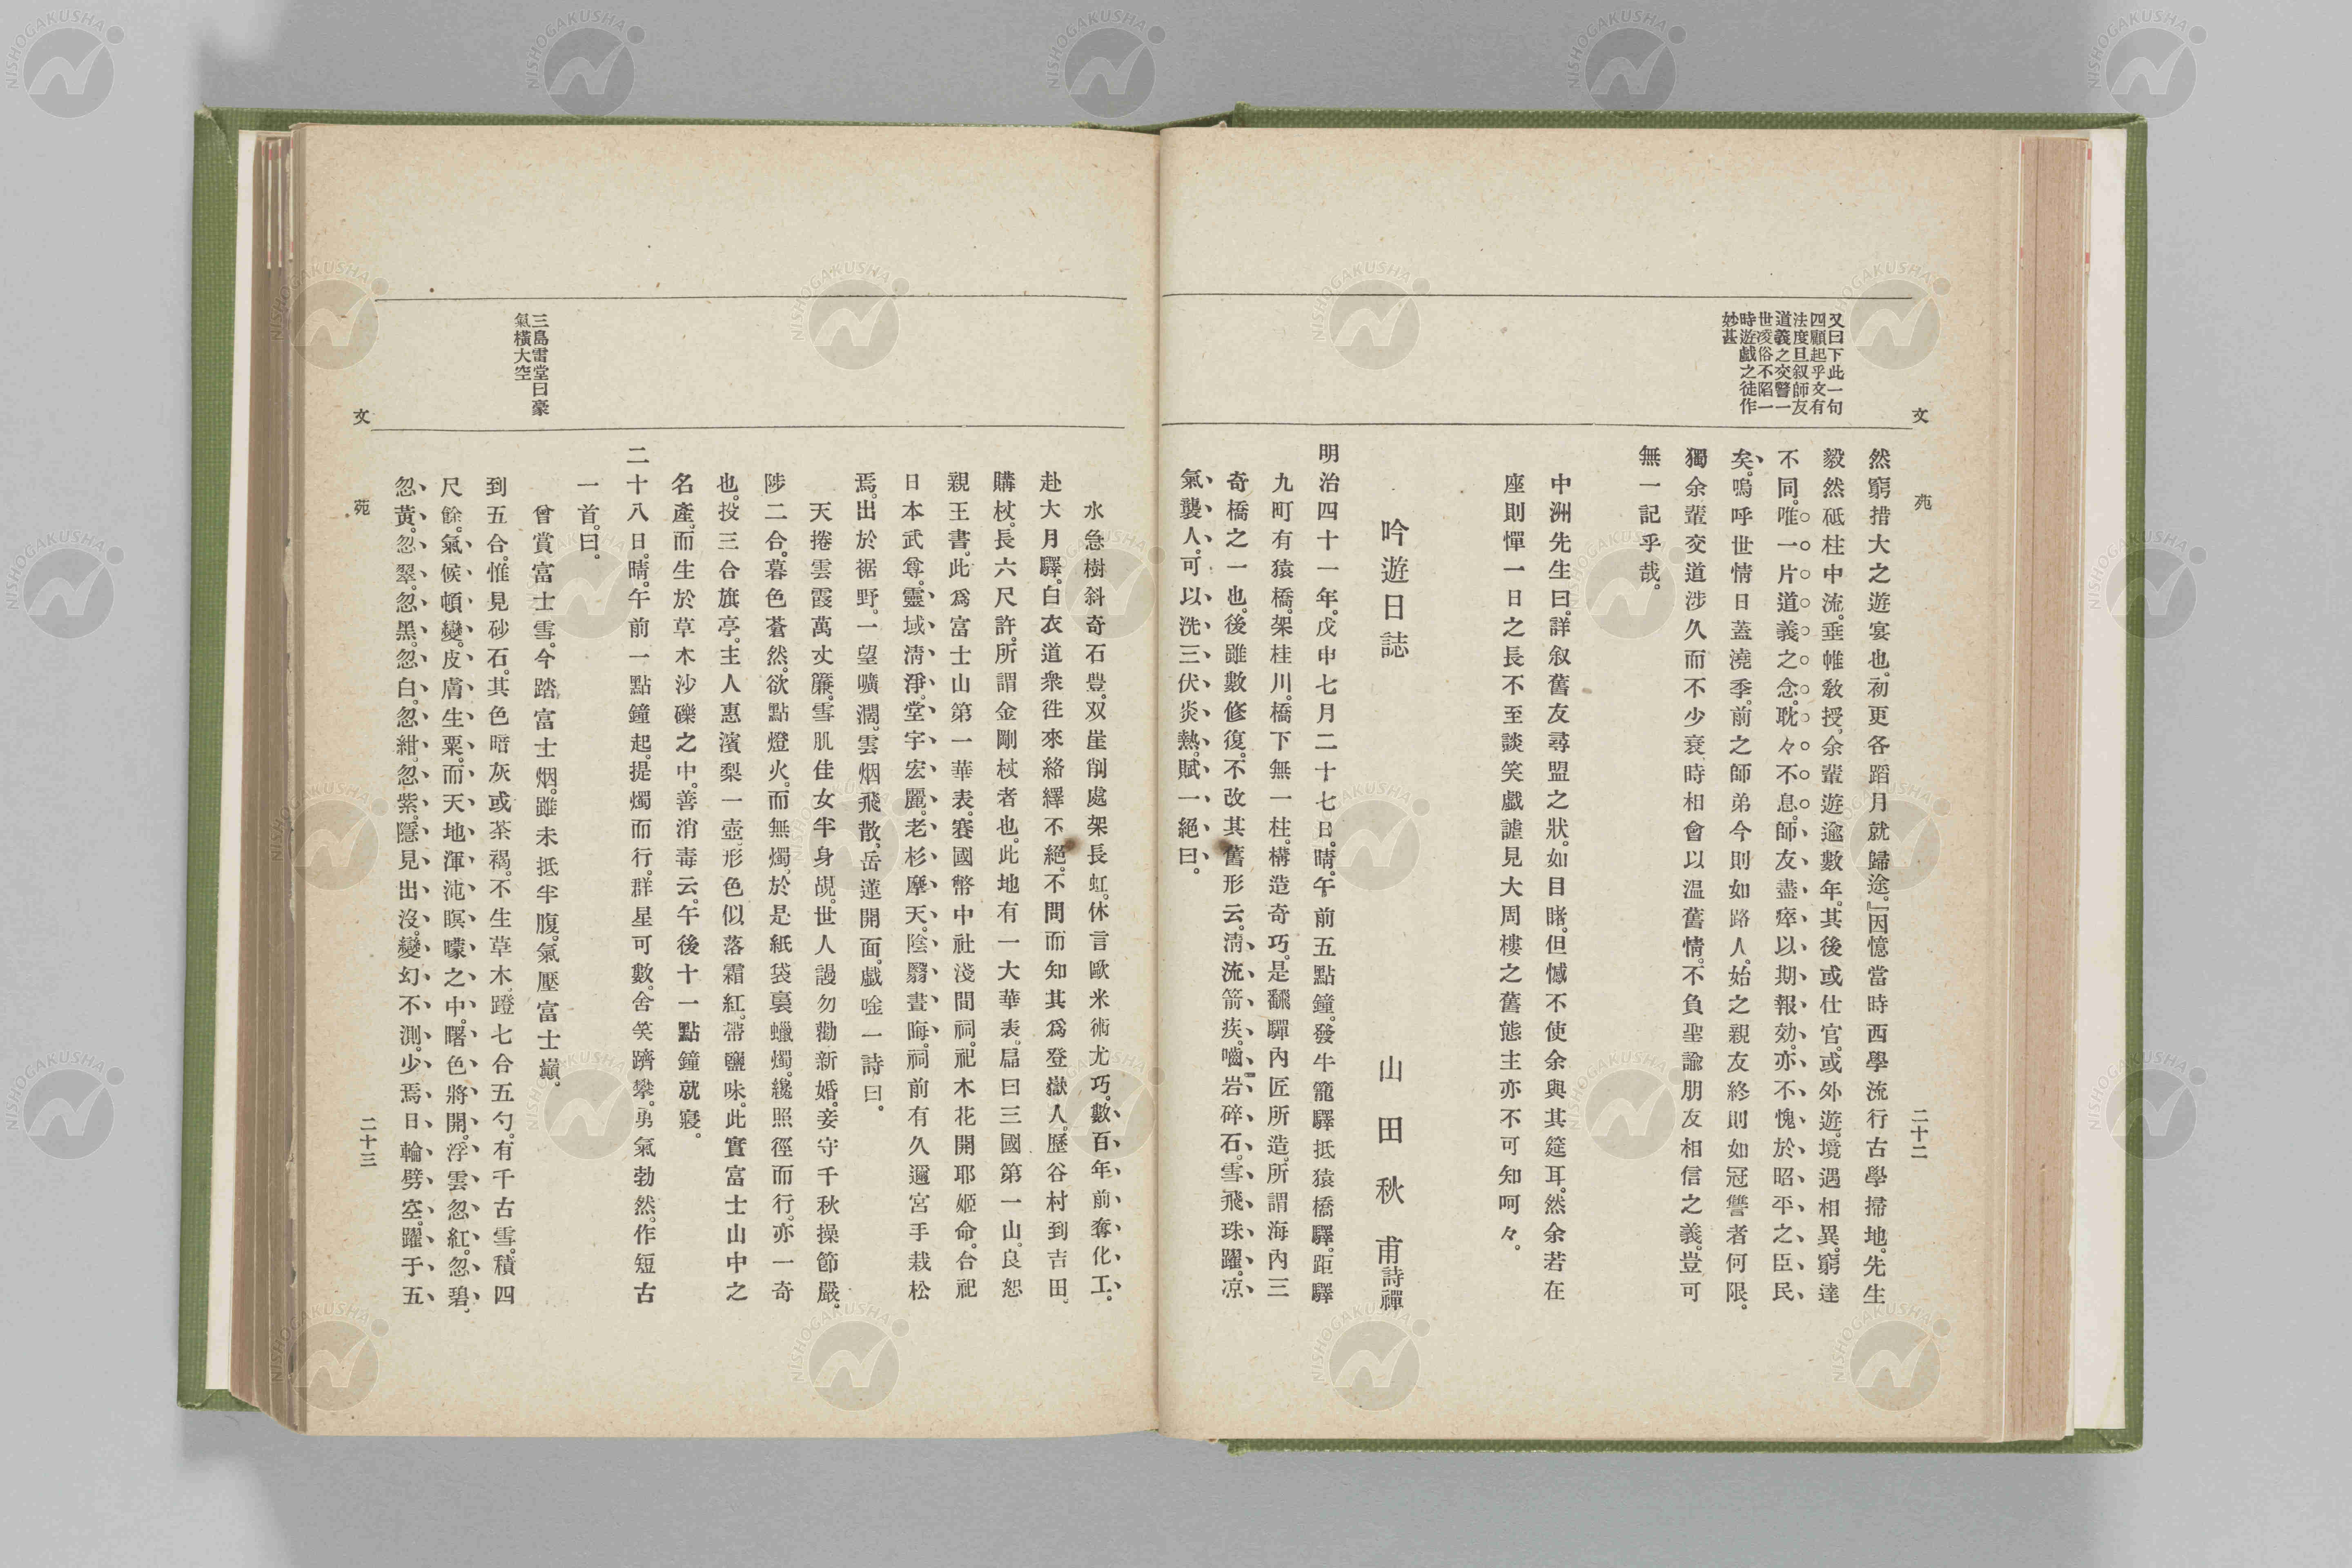 文
苑
二十二
又曰下此一句
四顧起乎文有
法度且叙師友
道義之交警一
世凌俗不陷一
時遊戯之徒作
妙甚
然窮措大之遊宴也。初更各蹈月就歸途。』因憶當時西學流行古學掃地。先生
毅然砥柱中流。垂帷敎授、余輩遊逾數年。其後或仕官。或外遊。境遇相異。窮達
不同。唯一片道義之念。耽々不息。師友盡瘁以期報効。亦不愧於昭平之臣民
矣。嗚呼世情日蓋澆季。前之師弟今則如路人。始之親友終則如冠讐者何限。
獨余輩交道涉久而不少衰時相會以温舊情。不負聖諭朋友相信之義。豈可
無一記乎哉。
中洲先生曰。詳叙舊友尋盟之狀。如目睹。但憾不使余與其筵耳。然余若在
座則憚一日之長不至談笑戯謔見大周樓之舊態主亦不可知呵々。
吟遊日誌
山田秋甫詩禪
明治四十一年。戊申七月二十七日。晴。午前五點鐘。發牛籠驛抵猿橋驛。距驛
九町有猿橋。架桂川。橋下無一柱。構造奇巧。是飜驒內匠所造。所謂海內三
奇橋之一也。後雖數修復。不改其舊形云。淸流箭疾。嚙岩碎石。雪飛珠躍。凉
氣襲人。可以洗三伏炎熱。賦一絕曰。
水急樹斜奇石豊。双崖削處架長虹。休言歐米術尤巧。數百年前奪化工。
赴大月驛。白衣道衆徃來絡繹不絕。不問而知其爲登嶽人。歷谷村到吉田。
購杖。長六尺許。所謂金剛杖者也。此地有一大華表。扁曰三國第一山。良恕
親王書。此爲富士山第一華表。賽國幣中社淺間祠。祀木花開耶姬命。合祀
日本武尊。靈域淸淨。堂宇宏麗。老杉摩天。陰翳晝晦。祠前有久邇宮手栽松
焉。出於裾野。一望曠濶。雲烟飛散、岳蓮開面。戯唫一詩曰。
天捲雲霞萬丈簾。雪肌佳女半身覘。世人謾勿勸新婚。妾守千秋操節嚴。
陟二合。暮色蒼然。欲點燈火。而無燭、於是紙袋裏蠟燭。纔照徑而行。亦一奇
也。投三合旗亭。主人惠濱梨一壺、形色似落霜紅。帶鹽味。此實富士山中之
名產、而生於草木沙礫之中。善消毒云。午後十一點鐘就寢。
二十八日。晴。午前一點鐘起。提燭而行。群星可數。舍笑躋攀。勇氣勃然。作短古
一首。曰。
曾賞富士雪。今踏富士烟。雖未抵半腹。氣壓富士巓。
到五合。惟見砂石。其色暗灰或茶褐。不生草木。蹬七合五勺。有千古雪。積四
尺餘。氣候頓變。皮膚生粟。而天地渾沌瞑曚之中。曙色將開。浮雲忽紅。忽碧。
忽黃。忽翠。忽黑。忽白。忽紺。忽紫。隱見出沒。變幻不測。少焉日輪劈空。躍于五
三島雷堂曰豪
氣橫大空
文
苑
二十三